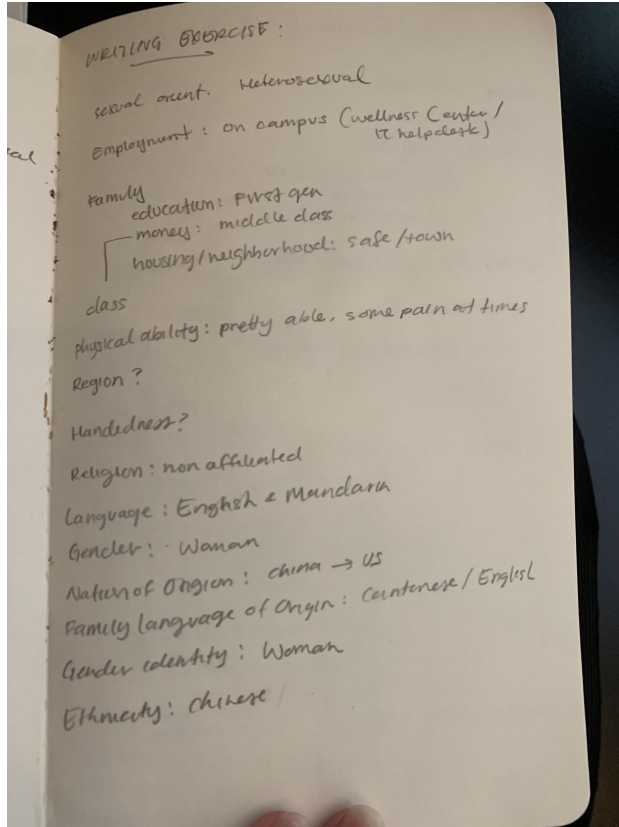 WRITING EXERCISE:
sexual orient. Heterosexual
Employment: on campus (Wellness Center/
IT helpdesk)
al
Family
education: First gen
money: middle class
housing/neighborhood: safe/town
class
physical ability: pretty able, some pain at times
Region?
Handedness?
Religion: non affiliated
Language: English & Mandarin
Gender: Woman
Nation of Origion: China → US
Family language of Origin: Cantonese/English
Gender identity: Woman
Ethnicity: Chinese